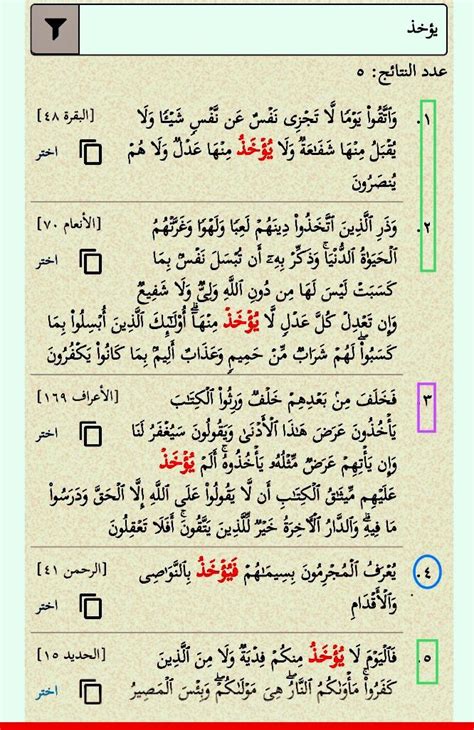 يؤخذ
عدد النتائج: ٥
١. وَٱتَّقُوا۟ يَوْمًا لَّا تَجْزِى نَفْسٌ عَن نَّفْسٍ شَيْـًٔا وَلَا [البقرة ٤٨]
يُقْبَلُ مِنْهَا شَفَـٰعَةٌ وَلَا يُؤْخَذُ مِنْهَا عَدْلٌ وَلَا هُمْ اختر
يُنصَرُونَ
٢. وَذَرِ ٱلَّذِينَ ٱتَّخَذُوا۟ دِينَهُمْ لَعِبًا وَلَهْوًا وَغَرَّتْهُمُ [الأنعام ٧٠]
ٱلْحَيَوٰةُ ٱلدُّنْيَا ۚ وَذَكِّرْ بِهِۦٓ أَن تُبْسَلَ نَفْسٌۢ بِمَا اختر
كَسَبَتْ لَيْسَ لَهَا مِن دُونِ ٱللَّهِ وَلِىٌّ وَلَا شَفِيعٌ
وَإِن تَعْدِلْ كُلَّ عَدْلٍ لَّا يُؤْخَذْ مِنْهَآ ۗ أُو۟لَـٰٓئِكَ ٱلَّذِينَ أُبْسِلُوا۟ بِمَا
كَسَبُوا۟ ۖ لَهُمْ شَرَابٌ مِّنْ حَمِيمٍ وَعَذَابٌ أَلِيمٌۢ بِمَا كَانُوا۟ يَكْفُرُونَ
٣ فَخَلَفَ مِنۢ بَعْدِهِمْ خَلْفٌ وَرِثُوا۟ ٱلْكِتَـٰبَ [الأعراف ١٦٩]
يَأْخُذُونَ عَرَضَ هَـٰذَا ٱلْأَدْنَىٰ وَيَقُولُونَ سَيُغْفَرُ لَنَا اختر
وَإِن يَأْتِهِمْ عَرَضٌ مِّثْلُهُۥ يَأْخُذُوهُ ۚ أَلَمْ يُؤْخَذْ
عَلَيْهِم مِّيثَـٰقُ ٱلْكِتَـٰبِ أَن لَّا يَقُولُوا۟ عَلَى ٱللَّهِ إِلَّا ٱلْحَقَّ وَدَرَسُوا۟
مَا فِيهِ ۗ وَٱلدَّارُ ٱلْـَٔاخِرَةُ خَيْرٌ لِّلَّذِينَ يَتَّقُونَ ۗ أَفَلَا تَعْقِلُونَ
٤. يُعْرَفُ ٱلْمُجْرِمُونَ بِسِيمَـٰهُمْ فَيُؤْخَذُ بِٱلنَّوَٰصِى [الرحمن ٤١]
وَٱلْأَقْدَامِ اختر
٥. فَٱلْيَوْمَ لَا يُؤْخَذُ مِنكُمْ فِدْيَةٌ وَلَا مِنَ ٱلَّذِينَ [الحديد ١٥]
كَفَرُوا۟ ۚ مَأْوَىٰكُمُ ٱلنَّارُ ۖ هِىَ مَوْلَىٰكُمْ ۖ وَبِئْسَ ٱلْمَصِيرُ اختر